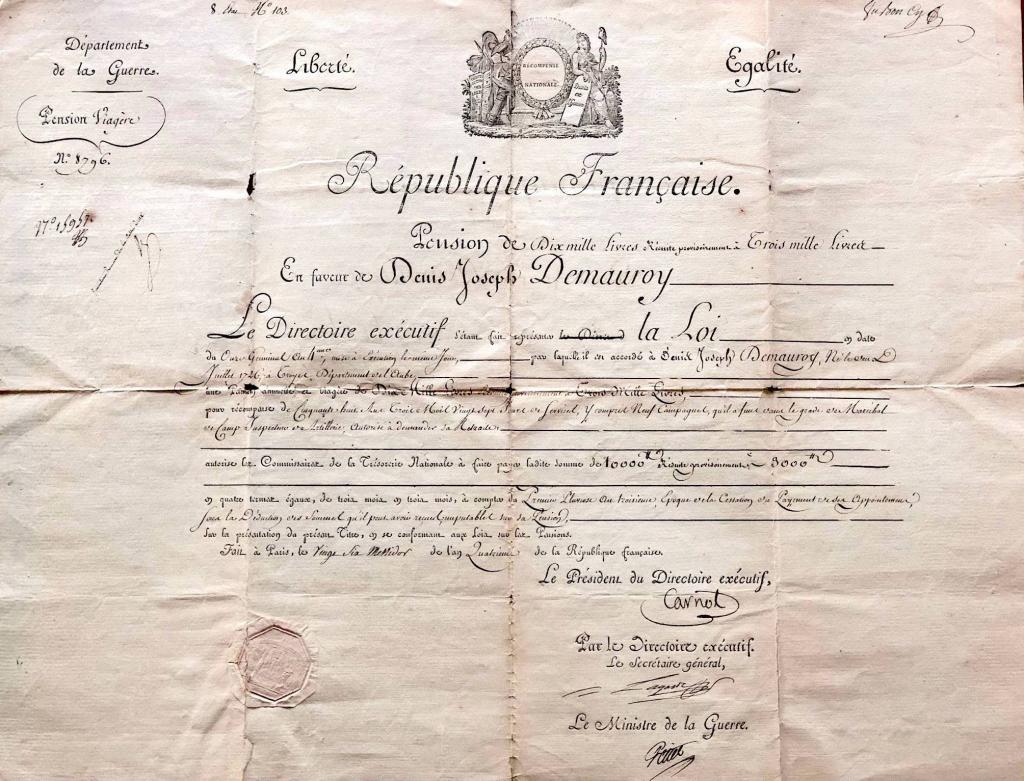 8
N° 103
Département
de la Guerre.
Pension Viagère
N° 8796.
Liberté.
RÉCOMPENSE
NATIONALE
Egalité.
République Française.
Pension de Dix mille Livres Réduite provisoirement à Trois mille Livres
En faveur de Denis Joseph Demauroy
Le Directoire exécutif s'étant fait représenter la Loi en date
du Onze Germinal An 4.me, mise à Exécution le même Jour, par laquelle il est accordé à Denis Joseph Demauroy, Né le
Juillet 1726, à Troyes, Département de l'Aube
une Pension annuelle et viagère de Dix Mille Livres Trois Mille Livres,
pour récompense de Cinquante huit Ans Trois Mois Vingt Sept Jours de Service, Y compris Neuf Campagnes, qu'il a faites dans le grade de Maréchal
de Camp Inspecteur de Artillerie, Autorisé à demander sa Retraite.
autorise les Commissaires de la Trésorerie Nationale à faire payer ladite somme de 10000 Réduite provisoirement à 3000
en quatre termes égaux, de trois mois en trois mois, à compter du Premier Pluviose An troisieme, Epoque de la Cessation du Payement de ses Appointemens,
sous la Déduction des Sommes qu'il peut avoir reçues imputables sur sa Pension,
sur la présentation du présent Titre, en se conformant aux Lois sur les Pensions.
Fait à Paris, le Vingt Six Messidor de l'an Quatrieme de la République française.
Le Président du Directoire exécutif,
Carnot
Par le Directoire exécutif.
Le Secrétaire général,
Lagarde
Le Ministre de la Guerre.
Petiet